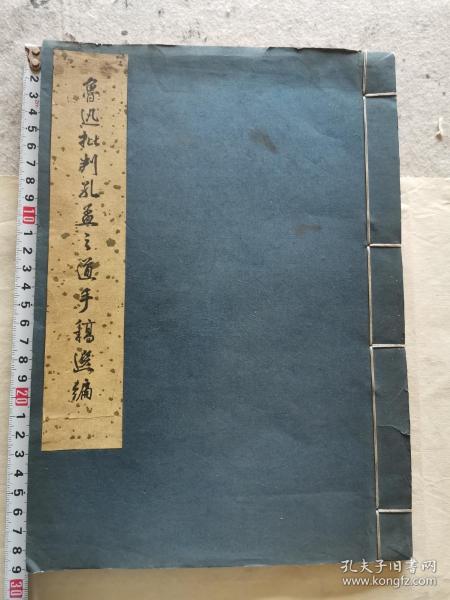 鲁迅批判孔孟之道手稿选编
孔夫子旧书网
www.kongfz.com
2 3 4 5 6 7 8 9 10 1 2 3 4 5 6 7 8 9 20 1 2 3 4 5 6 7 8 9 30